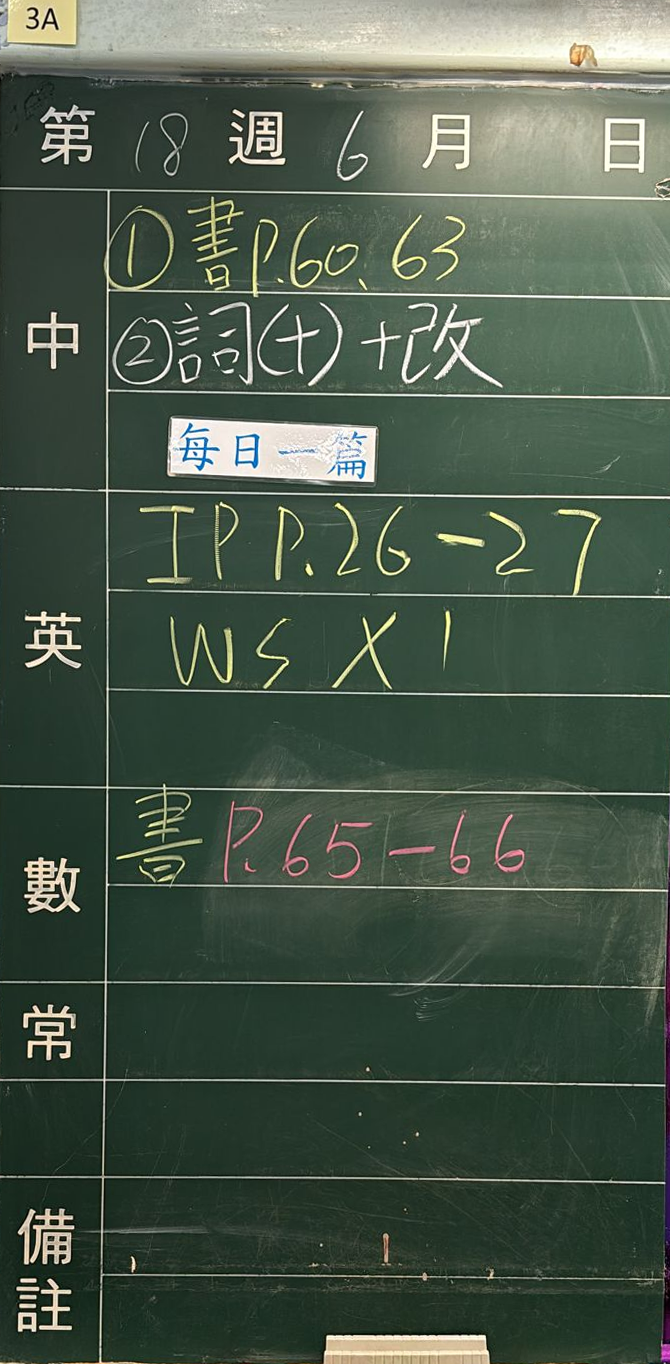 3A
第 18 週 6 月 日
中
①書P.60、63
②詞(十)+改
每日一篇
英
IP P.26-27
WS X 1
數
書 P.65-66
常
備註